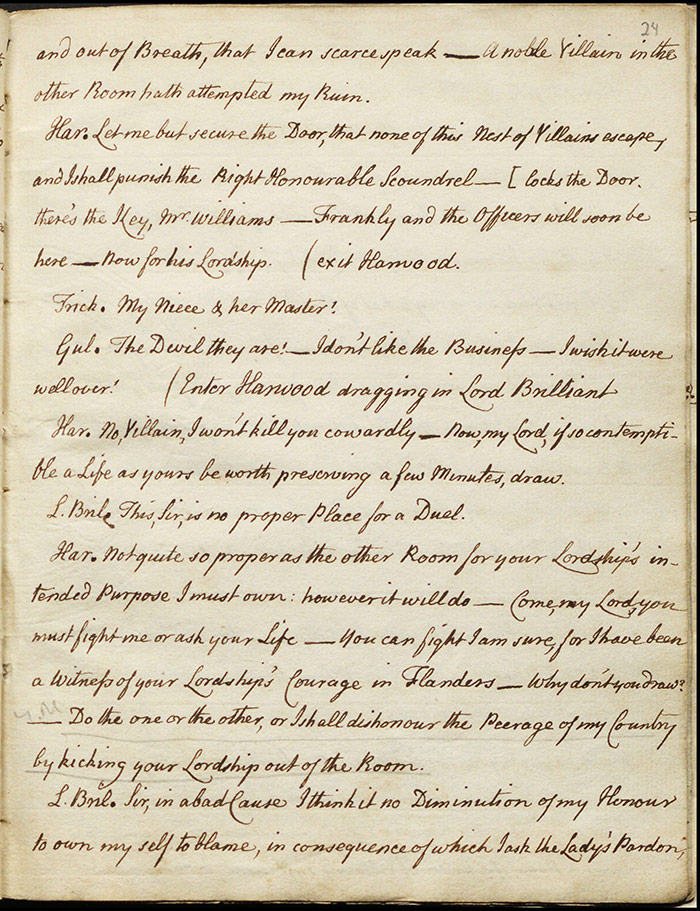 24
and out of Breath, that I can scarce speak — A noble Villain in the
other Room hath attempted my Ruin.
Har. Let me but secure the Door, that none of this Nest of Villains escape,
and I shall punish the Right Honourable Scoundrel — [ locks the Door.
there's the Key, Mr. Williams — Frankly and the Officers will soon be
here — now for his Lordship. ( exit Harwood.
Trick. My Niece & her Master!
Gul. The Devil they are! — I don't like the Business — I wish it were
well over! ( Enter Harwood dragging in Lord Brilliant
Har. No, Villain, I won't kill you cowardly — Now, my Lord, if so contempti-
ble a Life as yours be worth preserving a few Minutes, draw.
L. Bril. This, Sir, is no proper Place for a Duel.
Har. Not quite so proper as the other Room for your Lordship's in-
tended Purpose I must own: however it will do — Come, my Lord, you
must fight me or ask your Life — You can fight I am sure, for I have been
a Witness of your Lordship's Courage in Flanders — Why don't you draw?
— Do the one or the other, or I shall dishonour the Peerage of my Country
by kicking your Lordship out of the Room.
L. Bril. Sir, in a bad Cause I think it no Diminution of my Honour
to own my self to blame, in consequence of which I ask the Lady's Pardon,